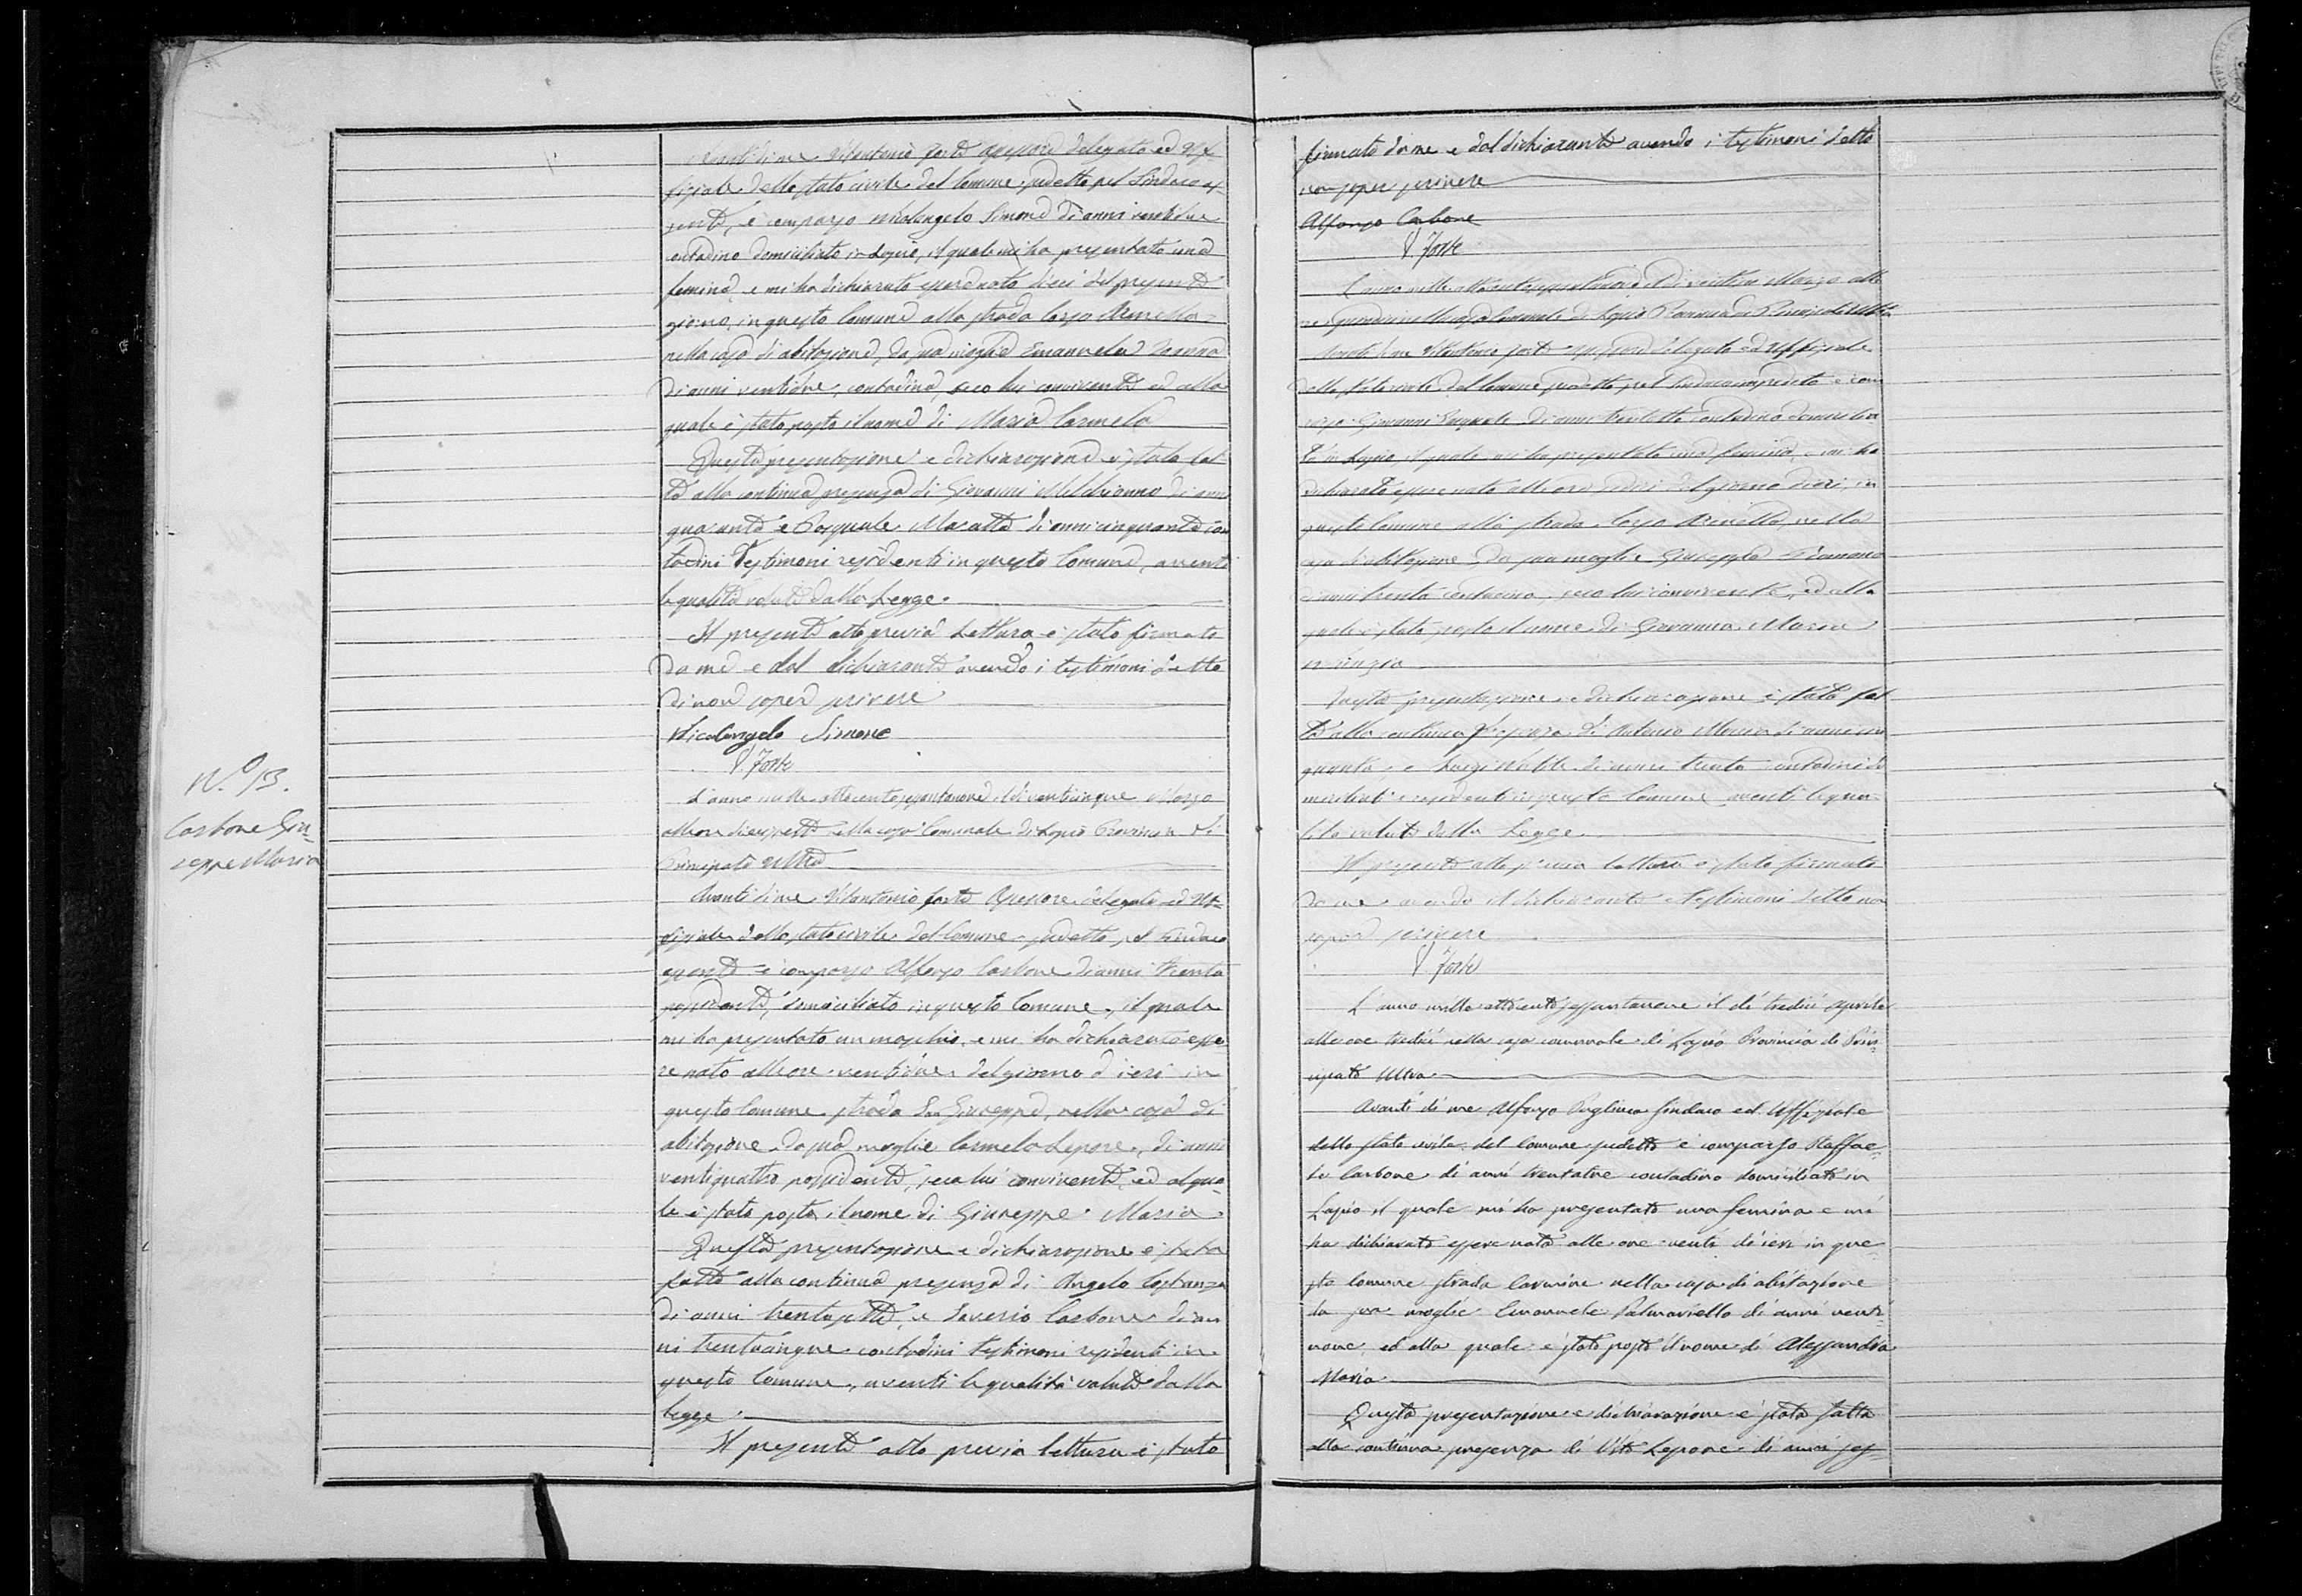 Avanti di me Vitantonio Forte Assessore delegato ed Uf=
fiziale dello stato civile del Comune sudetto pel Sindaco as=
sente, è comparso Nicolangelo Simone di anni ventidue
contadino domiciliato in Lapio, il quale mi ha presentato una
femina e mi ha dichiarato essere nata dieci del presente
giorno, in questo Comune alla strada Corso Arenella
nella casa di abitazione, da sua moglie Emanuela
di anni ventidue, contadina, seco lui convivente ed alla
quale è stato posto il nome di Maria Carmela
Questa presentazione e dichiarazione è stata fat=
ta alla continua presenza di Giovanni Melchionno di anni
quaranta e Pasquale di anni cinquanta con
tadini Testimoni residenti in questo Comune, aventi
le qualità volute dalla Legge.
Il presente atto previa lettura è stato firmato
da me e dal dichiarante avendo i testimoni detto
di non saper scrivere
Nicolangelo Simone
V. Forte
N.º 13.
Carbone Giu=
seppe Maria
L'anno mille ottocento sessantanove, il dì venticinque Marzo
alle ore diecisette nella casa Comunale di Lapio Provincia di
Principato Ultra
Avanti di me Vitantonio Forte Assessore delegato ed Uf=
fiziale dello stato civile del Comune sudetto pel Sindaco
assente è comparso Alfonso Carbone di anni trenta
possidente, domiciliato in questo Comune, il quale
mi ha presentato un maschio, e mi ha dichiarato esse
re nato alle ore ventidue del giorno d'ieri in
questo Comune strada San Giuseppe, nella casa di
abitazione da sua moglie Carmela Lepore, di anni
ventiquattro possidente, seco lui convivente, ed al qua=
le è stato posto il nome di Giuseppe Maria
Questa presentazione e dichiarazione è stata
fatta alla continua presenza di Angelo Costanza
di anni trentasette, e Saverio Carbone di an
ni trentacinque contadini testimoni residenti in
questo Comune, aventi le qualità volute dalla
legge.
Il presente atto previa lettura è stato
firmato da me e dal dichiarante avendo i testimoni detto
non saper scrivere
Alfonso Carbone
V. Forte
L'anno mille ottocento sessantanove il dì ventisei Marzo alle
ore quindici nella casa Comunale di Lapio Provincia di Principato Ultra
Avanti di me Vitantonio Forte Assessore delegato ed Uffiziale
dello stato civile del Comune sudetto pel Sindaco impedito è com
parso Giovanni Pasquale di anni trentotto contadino domicilia
to in Lapio, il quale mi ha presentato una femina, e mi ha
dichiarato essere nata alle ore sedici del giorno d'ieri, in
questo Comune alla strada Corso Arenella, nella
casa di abitazione da sua moglie Giuseppa
di anni trenta contadina, seco lui convivente, ed alla
quale è stato posto il nome di Giovanna Maria

Questa presentazione e dichiarazione è stata fat
ta alla continua presenza di Antonio di anni cin
quanta, e Luigi di anni trenta contadini do
miciliati e residenti in questo Comune aventi le qua=
lità volute dalla Legge.
Il presente atto previa lettura è stato firmato
da me avendo il dichiarante e testimoni detto non
sapere scrivere
V. Forte
L'anno mille ottocento sessantanove il dì tredici Aprile
alle ore tredici nella casa comunale di Lapio Provincia di Prin=
cipato Ultra.
Avanti di me Alfonso Sindaco ed Uffiziale
dello stato civile del Comune sudetto è comparso Raffae=
le Carbone di anni trentatre contadino domiciliato in
Lapio il quale mi ha presentato una femina e mi
ha dichiarato essere nata alle ore venti di ieri in que=
sto Comune strada nella casa di abitazione
da sua moglie Emanuela Palmariello di anni venti=
nove ed alla quale è stato posto il nome di Alessandra
Maria.
Questa presentazione e dichiarazione è stata fatta
alla continua presenza di Vito Lepore di anni ses=